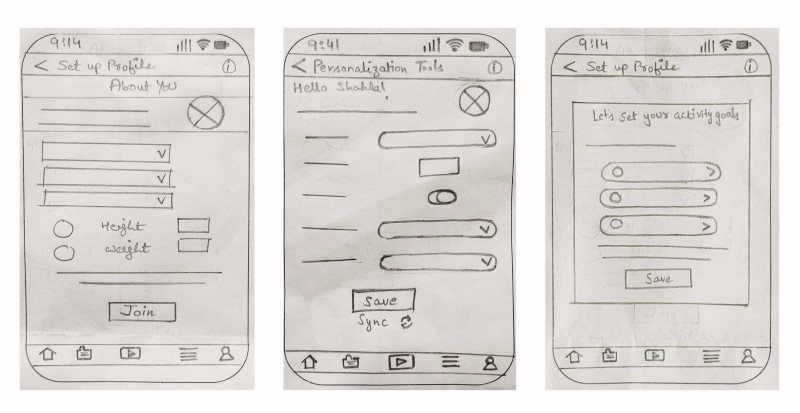 9:14
< Set up Profile i
About You
Height
weight
Join
9:41
< Personalization Tools i
Hello Shahla!
Save
Sync
9:14
< Set up Profile i
Let's set your activity goals
Save